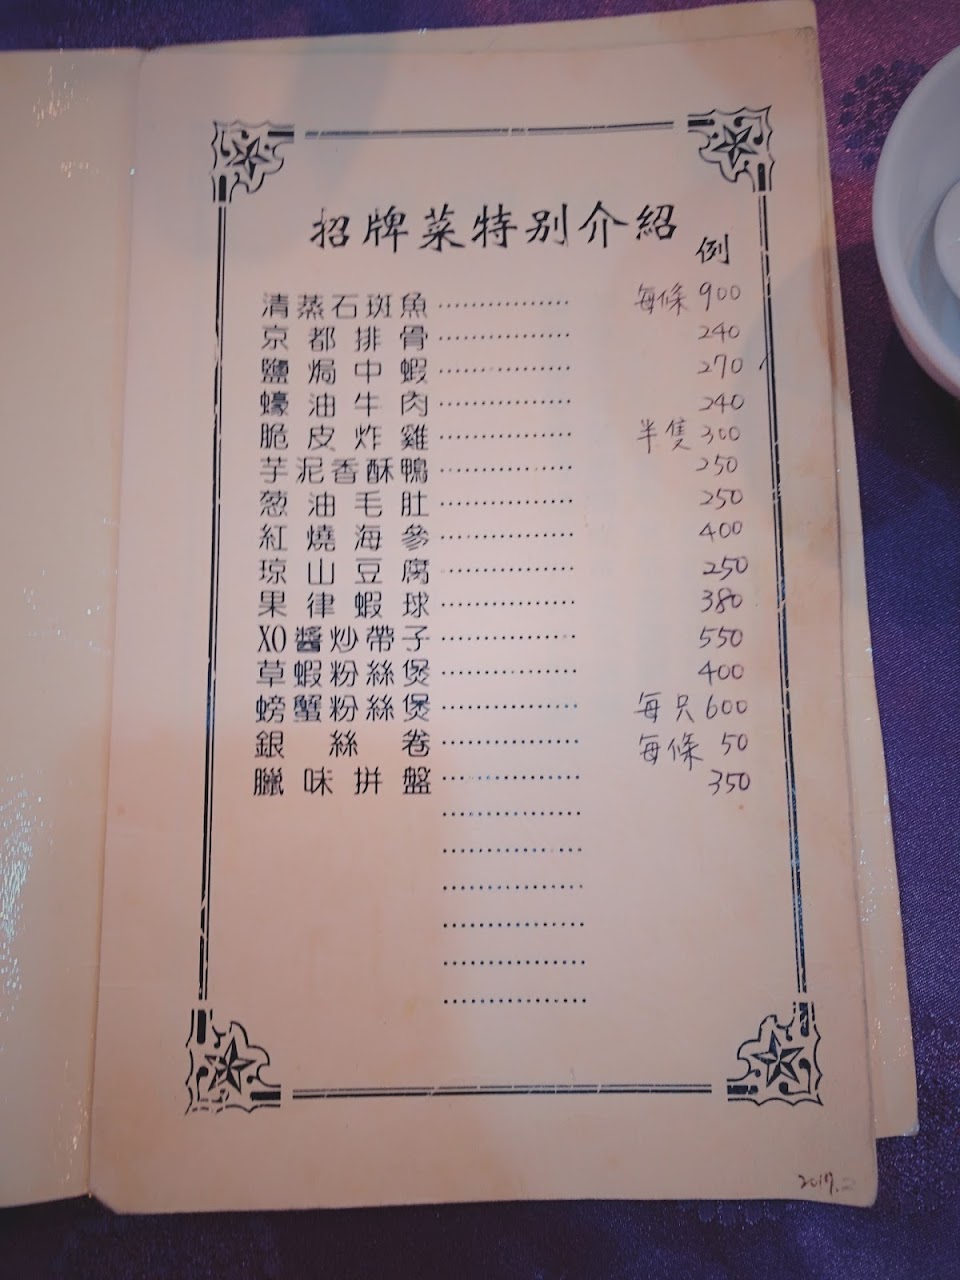 招牌菜特別介紹
例
清蒸石斑魚 每條 900
京都排骨 240
鹽焗中蝦 270
蠔油牛肉 240
脆皮炸雞 半隻 300
芋泥香酥鴨 250
葱油毛肚 250
紅燒海參 400
琼山豆腐 250
果律蝦球 380
XO醬炒帶子 550
草蝦粉絲煲 400
螃蟹粉絲煲 每只 600
銀絲卷 每條 50
臘味拼盤 350
2017.2